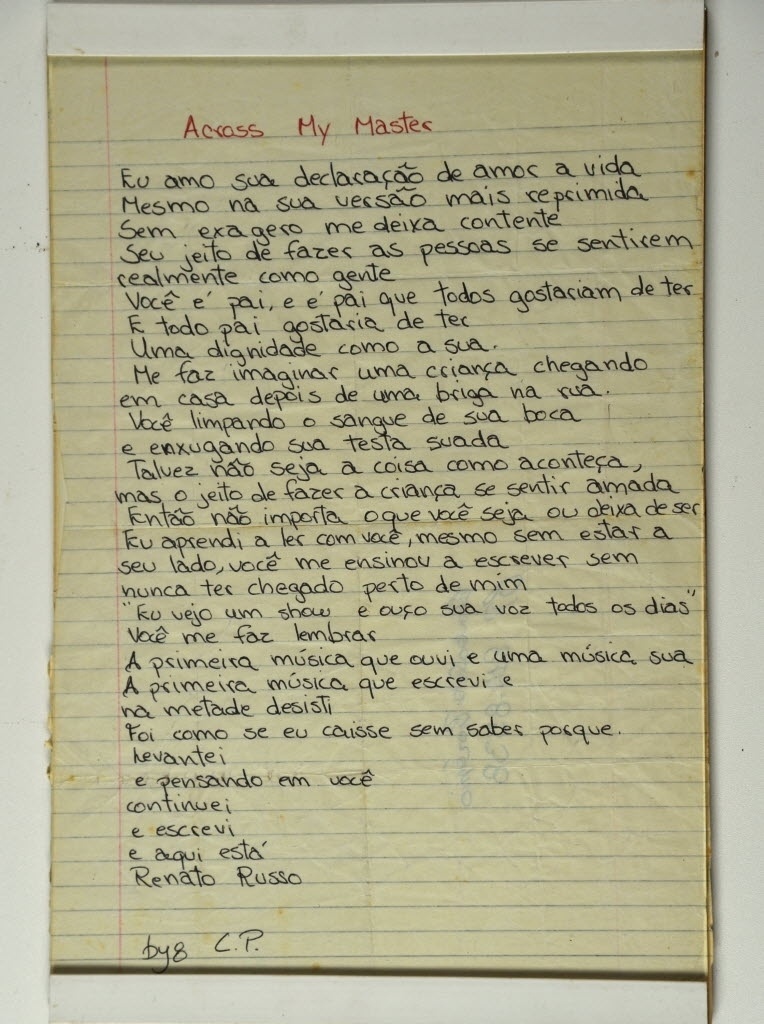 Across My Master
Eu amo sua declaração de amor a vida
Mesmo na sua versão mais reprimida
Sem exagero me deixa contente
Seu jeito de fazer as pessoas se sentirem
realmente como gente
Você é pai, e é pai que todos gostariam de ter
E todo pai gostaria de ter
Uma dignidade como a sua.
Me faz imaginar uma criança chegando
em casa depois de uma briga na rua.
Você limpando o sangue de sua boca
e enxugando sua testa suada
Talvez não seja a coisa como aconteça,
mas o jeito de fazer a criança se sentir amada
Então não importa o que você seja ou deixa de ser
Eu aprendi a ler com você, mesmo sem estar a
seu lado, você me ensinou a escrever sem
nunca ter chegado perto de mim
"Eu vejo um show e ouço sua voz todos os dias"
Você me faz lembrar
A primeira música que ouvi e uma música sua
A primeira música que escrevi e
na metade desisti
Foi como se eu caisse sem saber porque.
Levantei
e pensando em você
continuei
e escrevi
e aqui está
Renato Russo
by8 C.P.